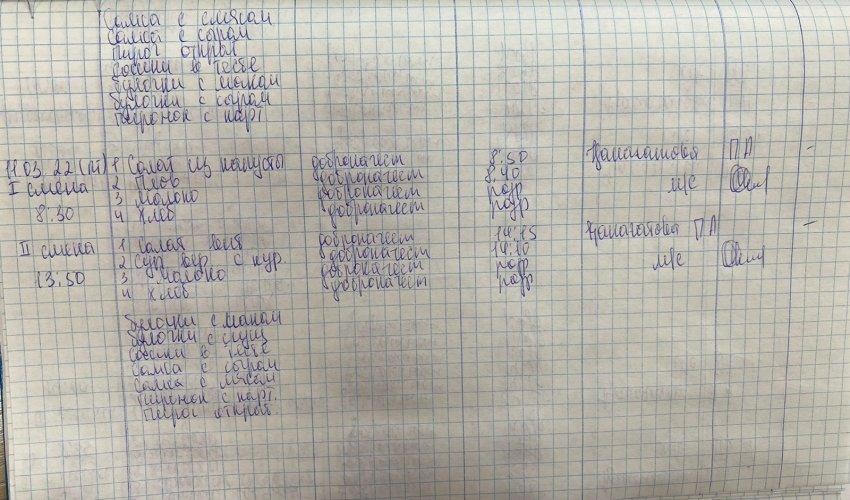 Самса с мясам
Самса с сырам
Пирог открыт
Сосиски в тесте
булочки с макам
булочки с сырам
Пирожок с карт
11.03.22 (пт) 1 Салат из капусты доброкачест 8:50 ПА -
I смена 2 Плов доброкачест 8:40 м/с
3 Молоко доброкачест разр
8:30 4 Хлеб доброкачест разр
II смена 1 Салат вит доброкачест 14:15 ПА -
2 Суп вер с кур доброкачест 14:10 м/с
13:50 3 Молоко доброкачест разр
4 Хлеб доброкачест разр
булочки с макам
булочки с сгущ
Сосиски в тесте
Самса с сырам
Самса с мясам
Пирожок с карт.
Пирог открыт